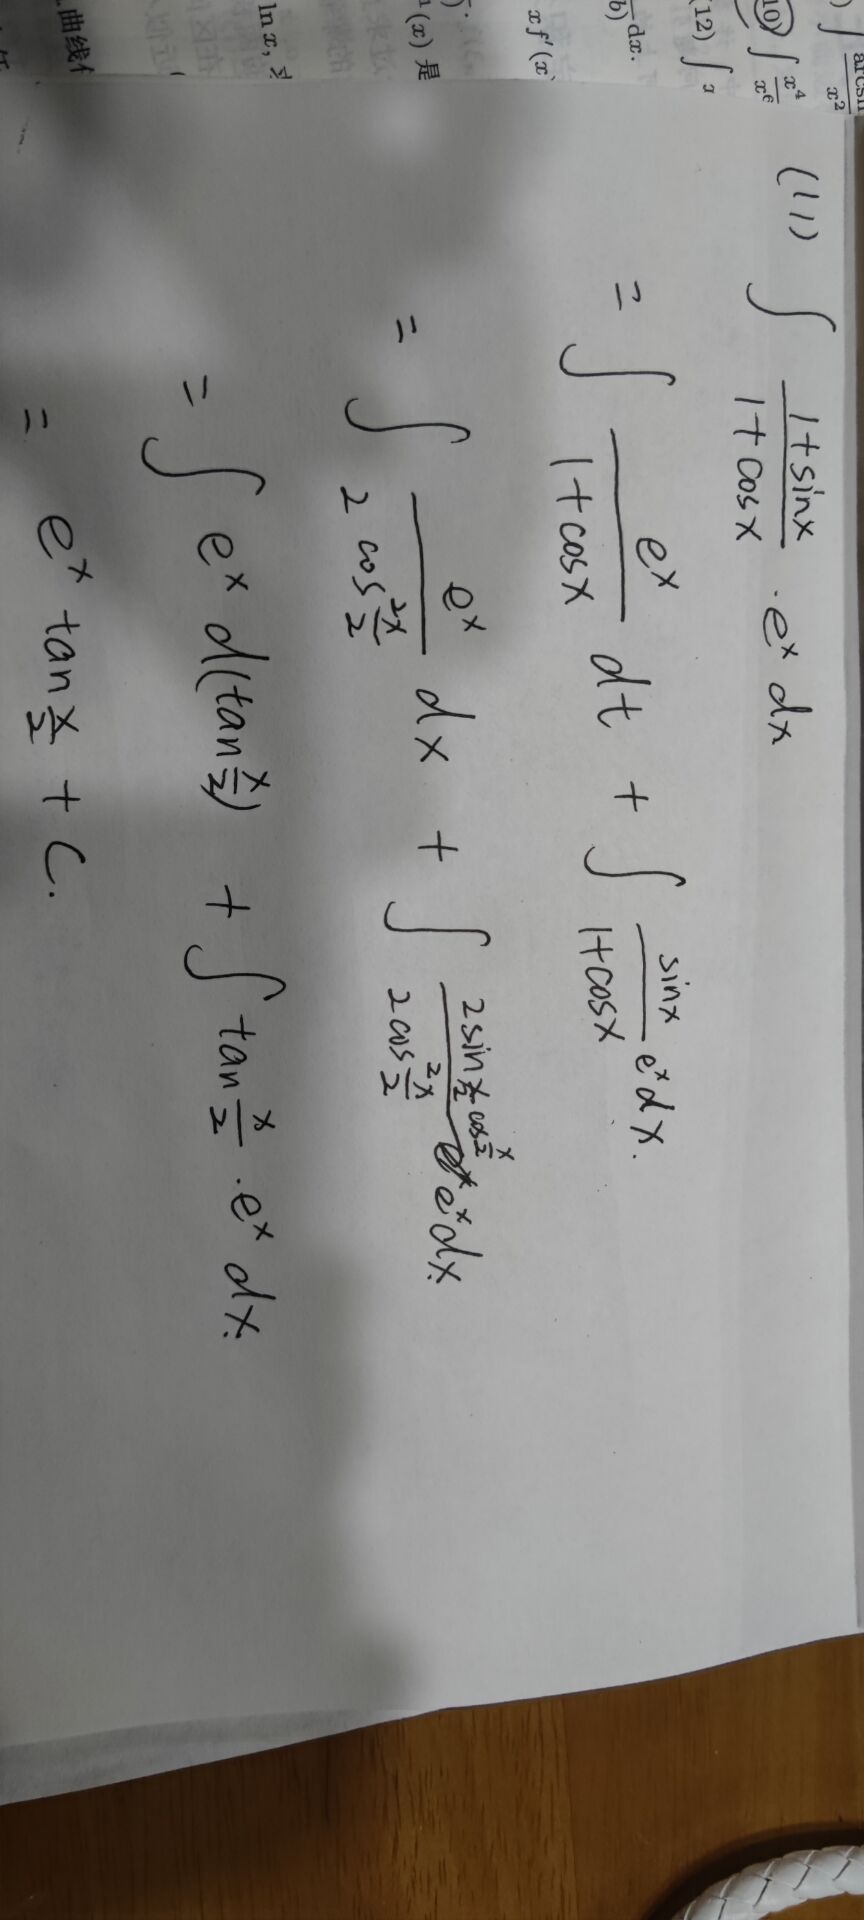 arcsin
x²
10) ∫ x⁴
x⁶
(12) ∫
dx.
b)
x f′(x)
(x) 是
ln x, 
曲线
(11) ∫ \frac{1+sinx}{1+cosx} · eˣ dx
= ∫ \frac{eˣ}{1+cosx} dt + ∫ \frac{sinx}{1+cosx} eˣ dx.
= ∫ \frac{eˣ}{2cos²\frac{x}{2}} dx + ∫ \frac{2sin\frac{x}{2}cos\frac{x}{2}}{2cos²\frac{x}{2}} eˣ dx.
= ∫ eˣ d(tan\frac{x}{2}) + ∫ tan\frac{x}{2} · eˣ dx.
= eˣ tan\frac{x}{2} + C.